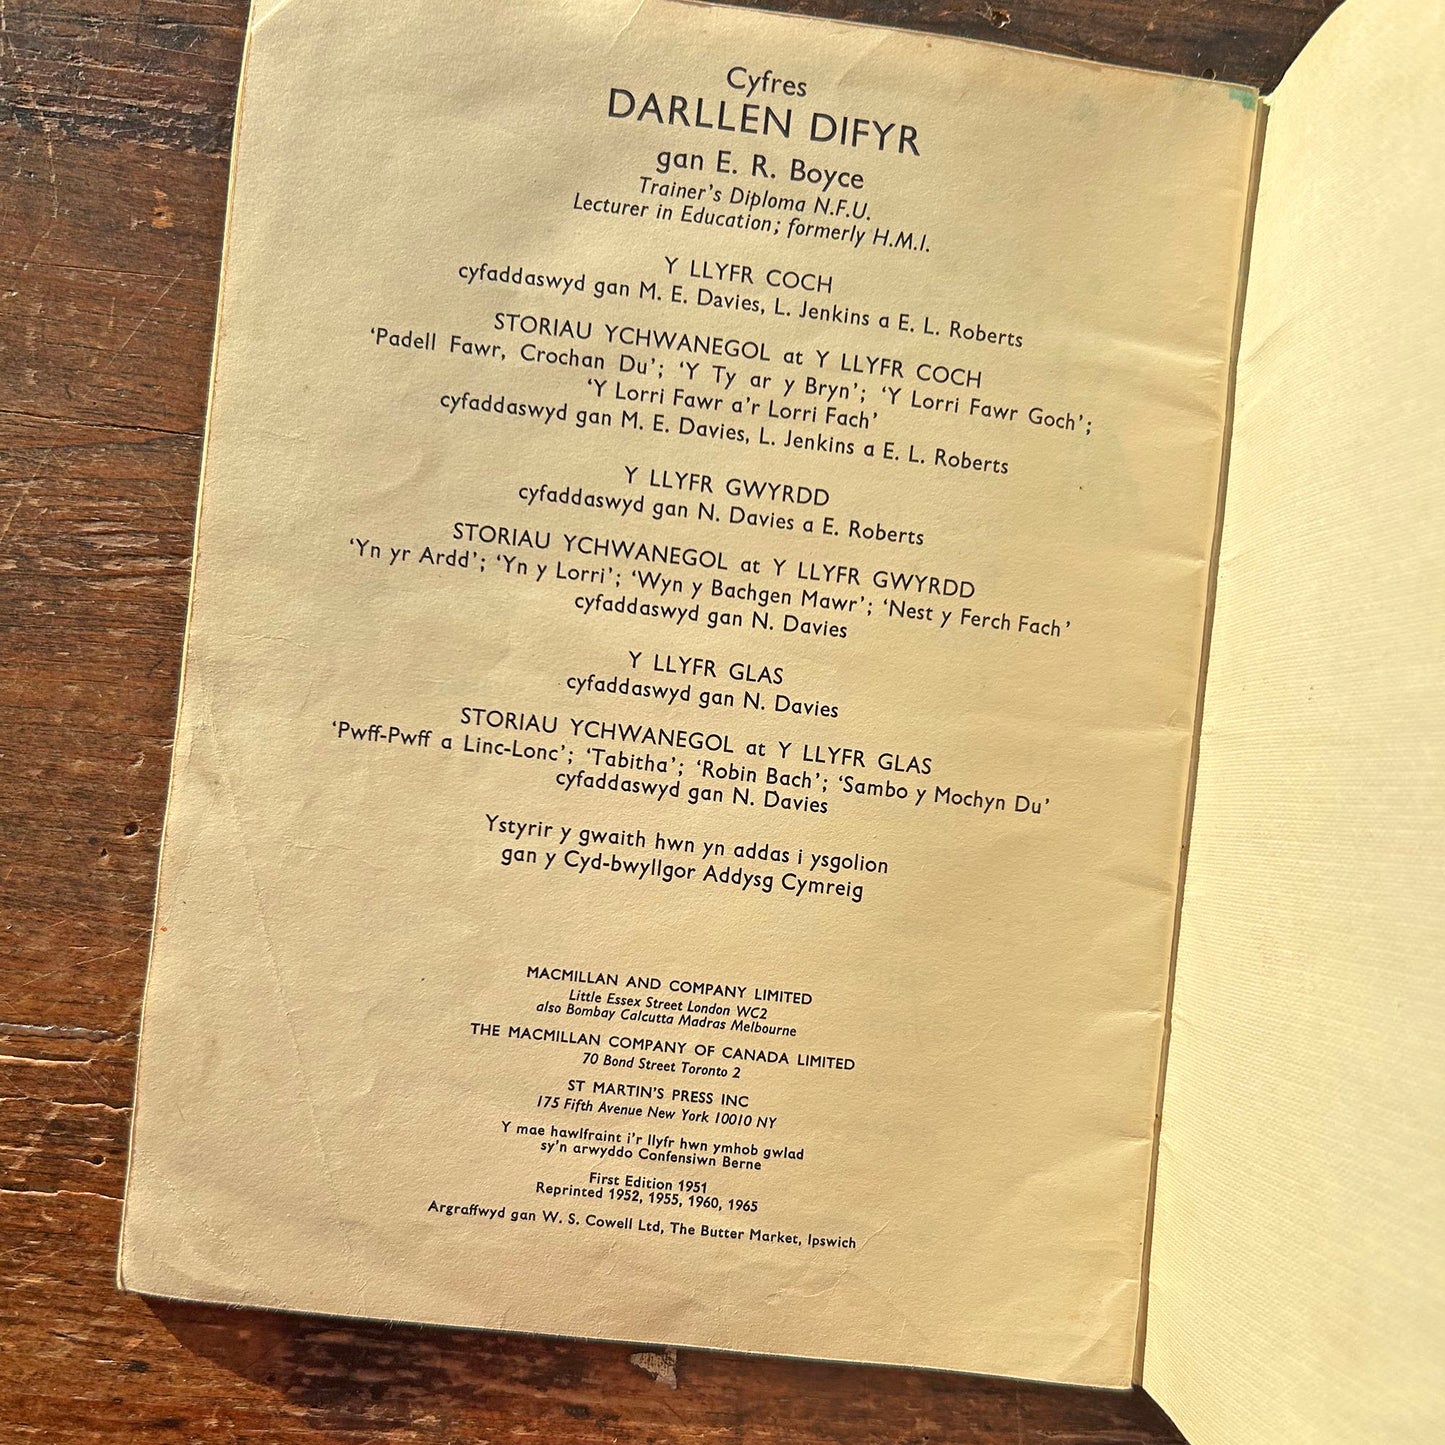 Cyfres
DARLLEN DIFYR
gan E. R. Boyce
Trainer's Diploma N.F.U.
Lecturer in Education; formerly H.M.I.
Y LLYFR COCH
cyfaddaswyd gan M. E. Davies, L. Jenkins a E. L. Roberts
STORIAU YCHWANEGOL at Y LLYFR COCH
‘Padell Fawr, Crochan Du’; ‘Y Ty ar y Bryn’; ‘Y Lorri Fawr Goch’;
‘Y Lorri Fawr a’r Lorri Fach’
cyfaddaswyd gan M. E. Davies, L. Jenkins a E. L. Roberts
Y LLYFR GWYRDD
cyfaddaswyd gan N. Davies a E. Roberts
STORIAU YCHWANEGOL at Y LLYFR GWYRDD
‘Yn yr Ardd’; ‘Yn y Lorri’; ‘Wyn y Bachgen Mawr’; ‘Nest y Ferch Fach’
cyfaddaswyd gan N. Davies
Y LLYFR GLAS
cyfaddaswyd gan N. Davies
STORIAU YCHWANEGOL at Y LLYFR GLAS
‘Pwff-Pwff a Linc-Lonc’; ‘Tabitha’; ‘Robin Bach’; ‘Sambo y Mochyn Du’
cyfaddaswyd gan N. Davies
Ystyrir y gwaith hwn yn addas i ysgolion
gan y Cyd-bwyllgor Addysg Cymreig
MACMILLAN AND COMPANY LIMITED
Little Essex Street London WC2
also Bombay Calcutta Madras Melbourne
THE MACMILLAN COMPANY OF CANADA LIMITED
70 Bond Street Toronto 2
ST MARTIN'S PRESS INC
175 Fifth Avenue New York 10010 NY
Y mae hawlfraint i'r llyfr hwn ymhob gwlad
sy'n arwyddo Confensiwn Berne
First Edition 1951
Reprinted 1952, 1955, 1960, 1965
Argraffwyd gan W. S. Cowell Ltd, The Butter Market, Ipswich